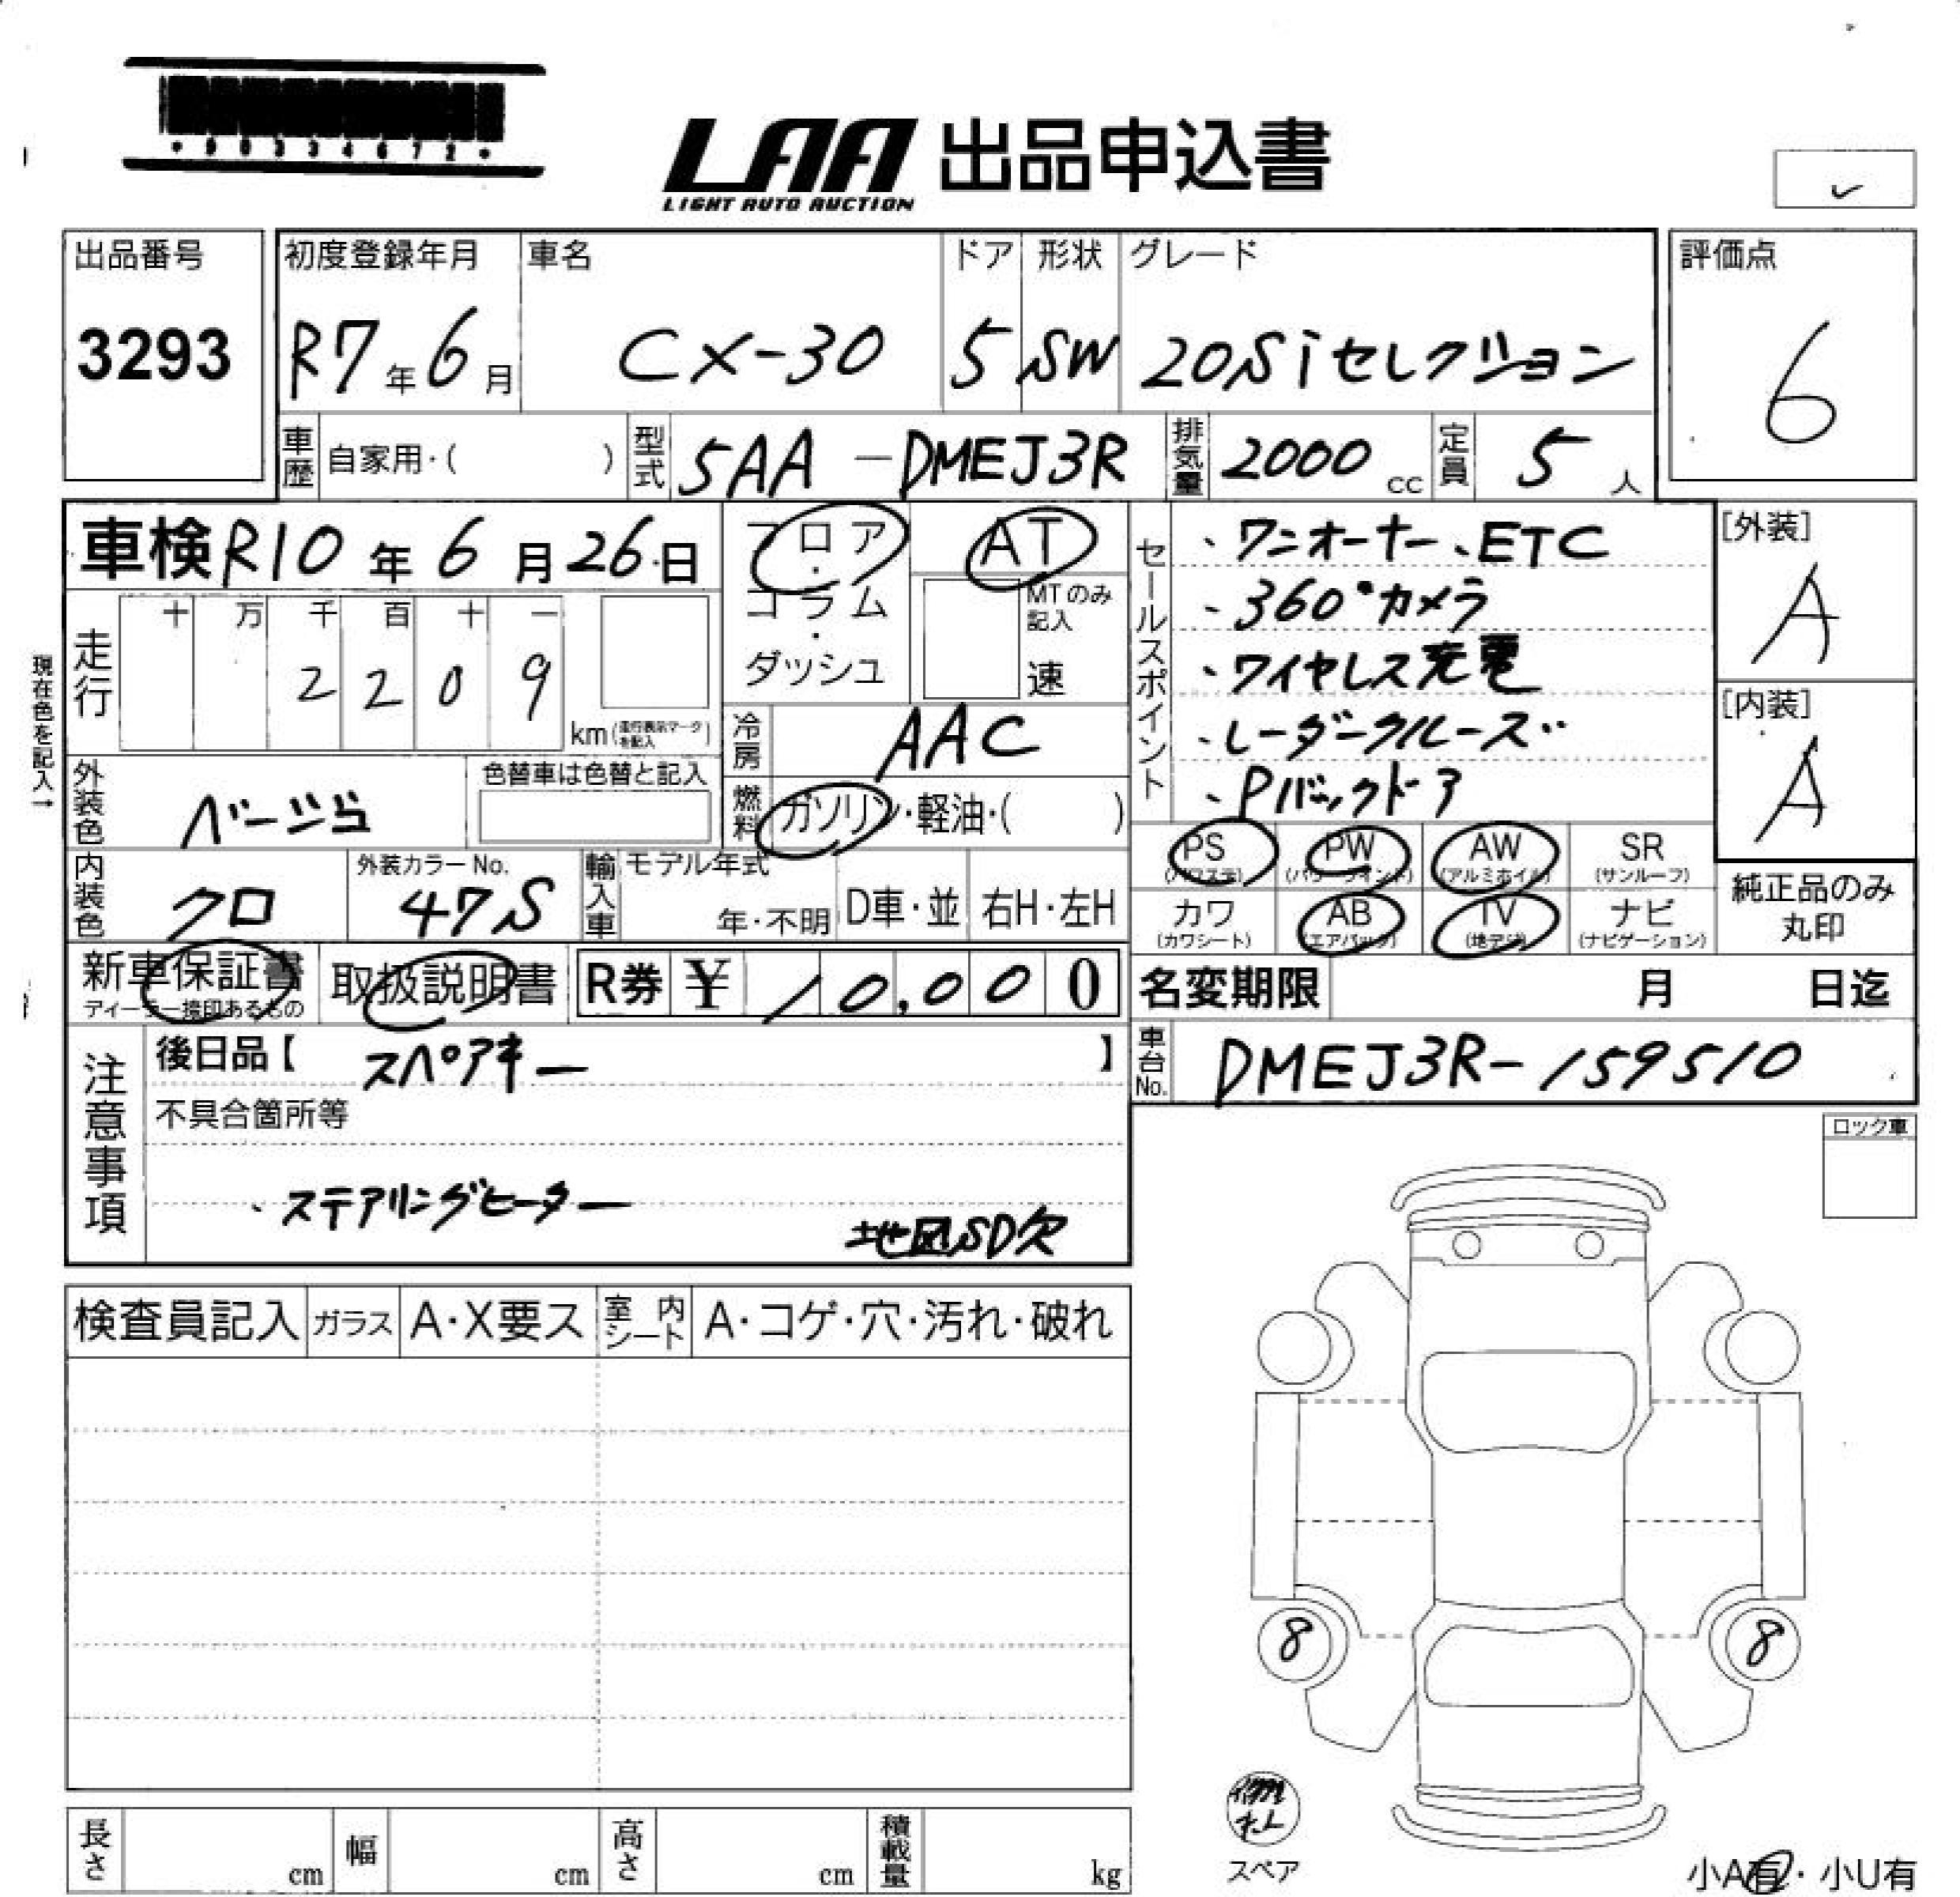 *90334672*
LAA 出品申込書
LIGHT AUTO AUCTION
出品番号 初度登録年月 車名 ドア 形状 グレード 評価点
3293 R7年6月 CX-30 5 SW 20Siセレクション 6
車歴 自家用・( ) 型式 5AA-DMEJ3R 排気量 2000cc 定員 5人
車検 R10年6月26日 フロア・コラム・ダッシュ AT
MTのみ記入 速
現在色を記入→
走行 十 万 千 百 十 一
2 2 0 9 km(走行表示マークを記入)
冷房 AAC
外装色 ベージュ 色替車は色替と記入
燃料 ガソリン・軽油・( )
セールスポイント
、ワンオーナー、ETC
、360°カメラ
、ワイヤレス充電
、レーダークルーズ
、Pバックドア
[外装] A
[内装] A
PS (パワステ) PW (パワーウインド) AW (アルミホイル) SR (サンルーフ)
カワ (カワシート) AB (エアバック) TV (地デジ) ナビ (ナビゲーション)
純正品のみ丸印
内装色 クロ 外装カラーNo. 47S 輸入車 モデル年式 年・不明 D車・並 右H・左H
新車保証書 取扱説明書 R券 ¥ 10,000
ディーラー捺印あるもの
名変期限 月 日迄
車台No. DMEJ3R-159510
注意事項
後日品【 スペアキー 】
不具合箇所等
、ステアリングヒーター
地図SD欠
ロック車
検査員記入 ガラス A・X要ス 室内シート A・コゲ・穴・汚れ・破れ
8 8
スペア
長さ cm 幅 cm 高さ cm 積載量 kg
小A有・小U有